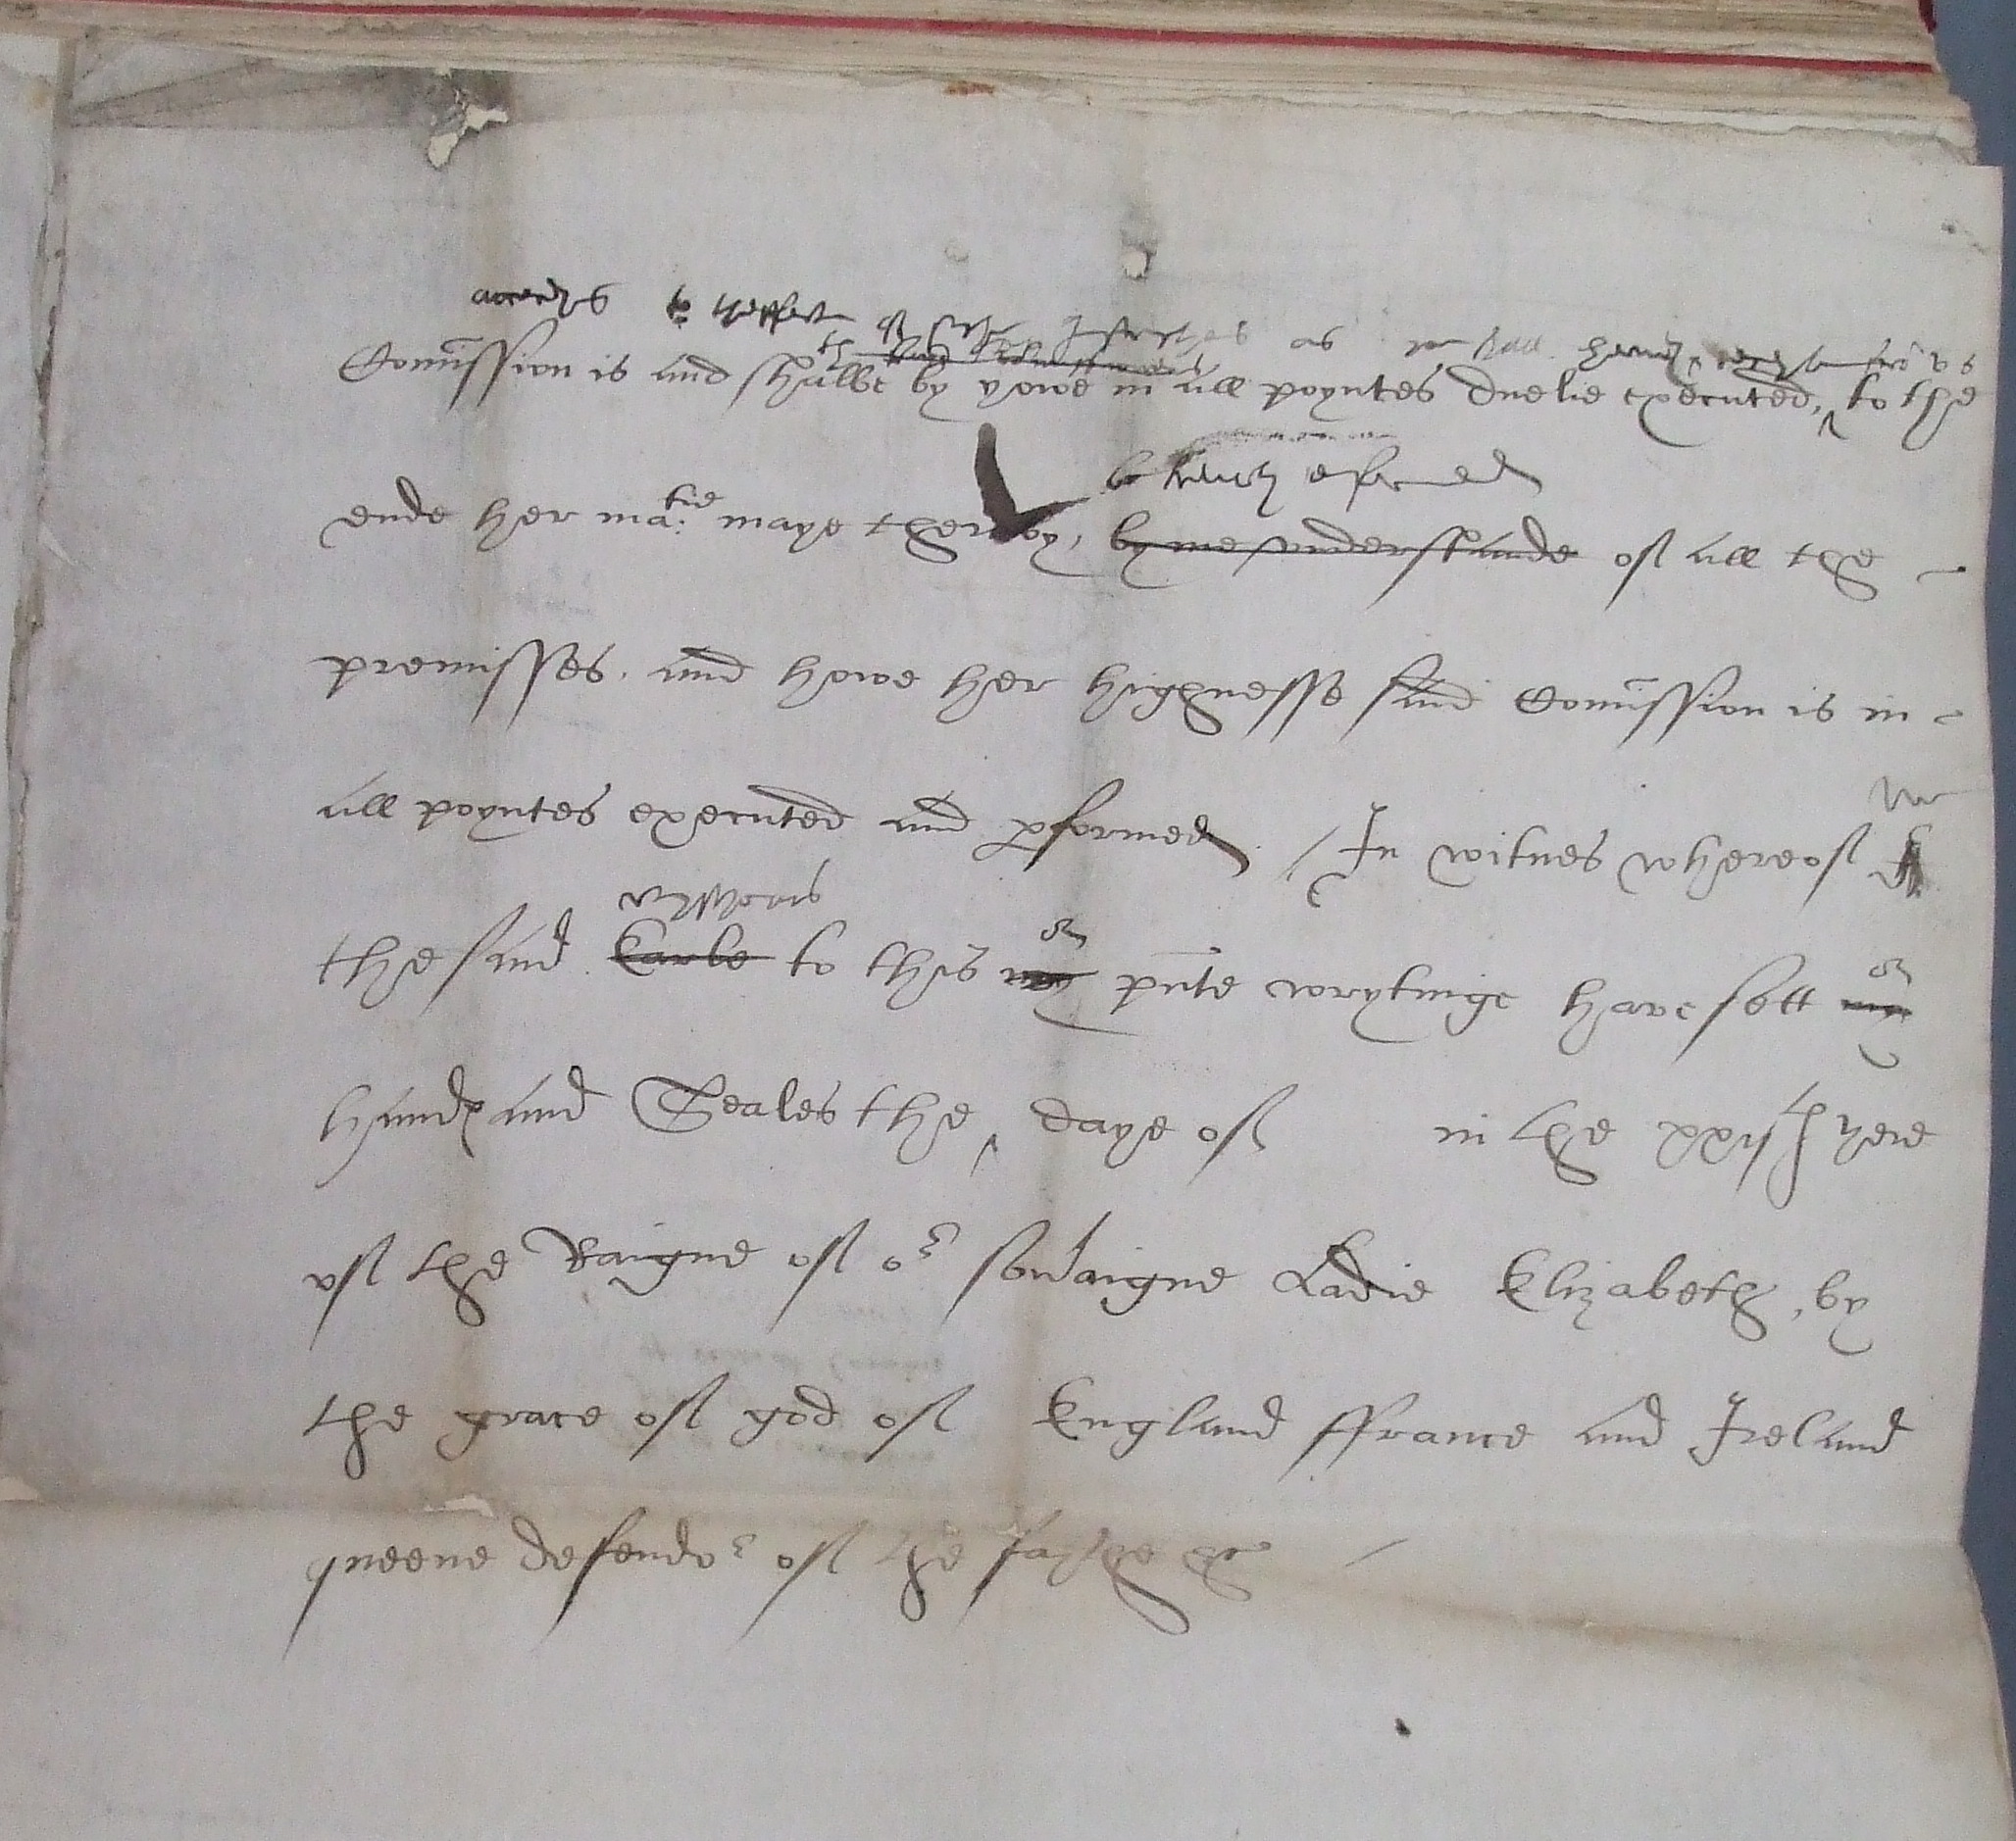 as
Comission is and shalbe by yowe in all poyntes duelie executed, to the
be
ende her ma:tie maye therby, by me understande of all the
premisses. and howe her highnesse said Comission is in
all poyntes executed and pformed / In witnes whereof
we
the said Earle to this my pnte wrytinge have sett my
or or
hand and Seales the daye of in the xxith yere
of the Raigne of or soveraigne Ladie Elizabeth, by
the grace of god of England ffrance and Ireland
queene defendor of the faythe &c